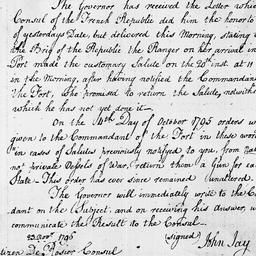 The Governor has received the Letter which
Consul of the French Republic did him the honor to
of yesterdays Date, but delivered this Morning, stating
the Brig of the Republic the Ranger on her arrival in
Port made the customary Salute on the 20th inst at 11
in the Morning, after having notified the Commandan
the Fort, who promised to return the Salute, notwith
which he has not yet done it—
On the 14th Day of October 1795 orders w
given to the Commandant of the Fort in these wor
in cases of Salutes previously notified to you, from
not private Vessels of War, return them a Gun for ea
State— This order has ever since remained unaltered.
The Governor will immediately write to the C
dant on the Subject, and on receiving his Answer, w
communicate the Result to the Consul—
1796
(signed) John Jay
Consul